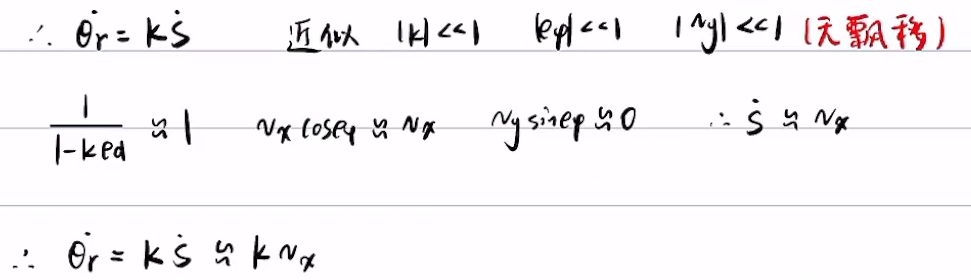 ∴ θ̇r = kṡ 近似 |k|<<1 |eφ|<<1 |vy|<<1 (无飘移)
1/(1-ked) ≈ 1 vx coseφ ≈ vx vy sineφ ≈ 0 ∴ ṡ ≈ vx
∴ θ̇r = kṡ ≈ kvx